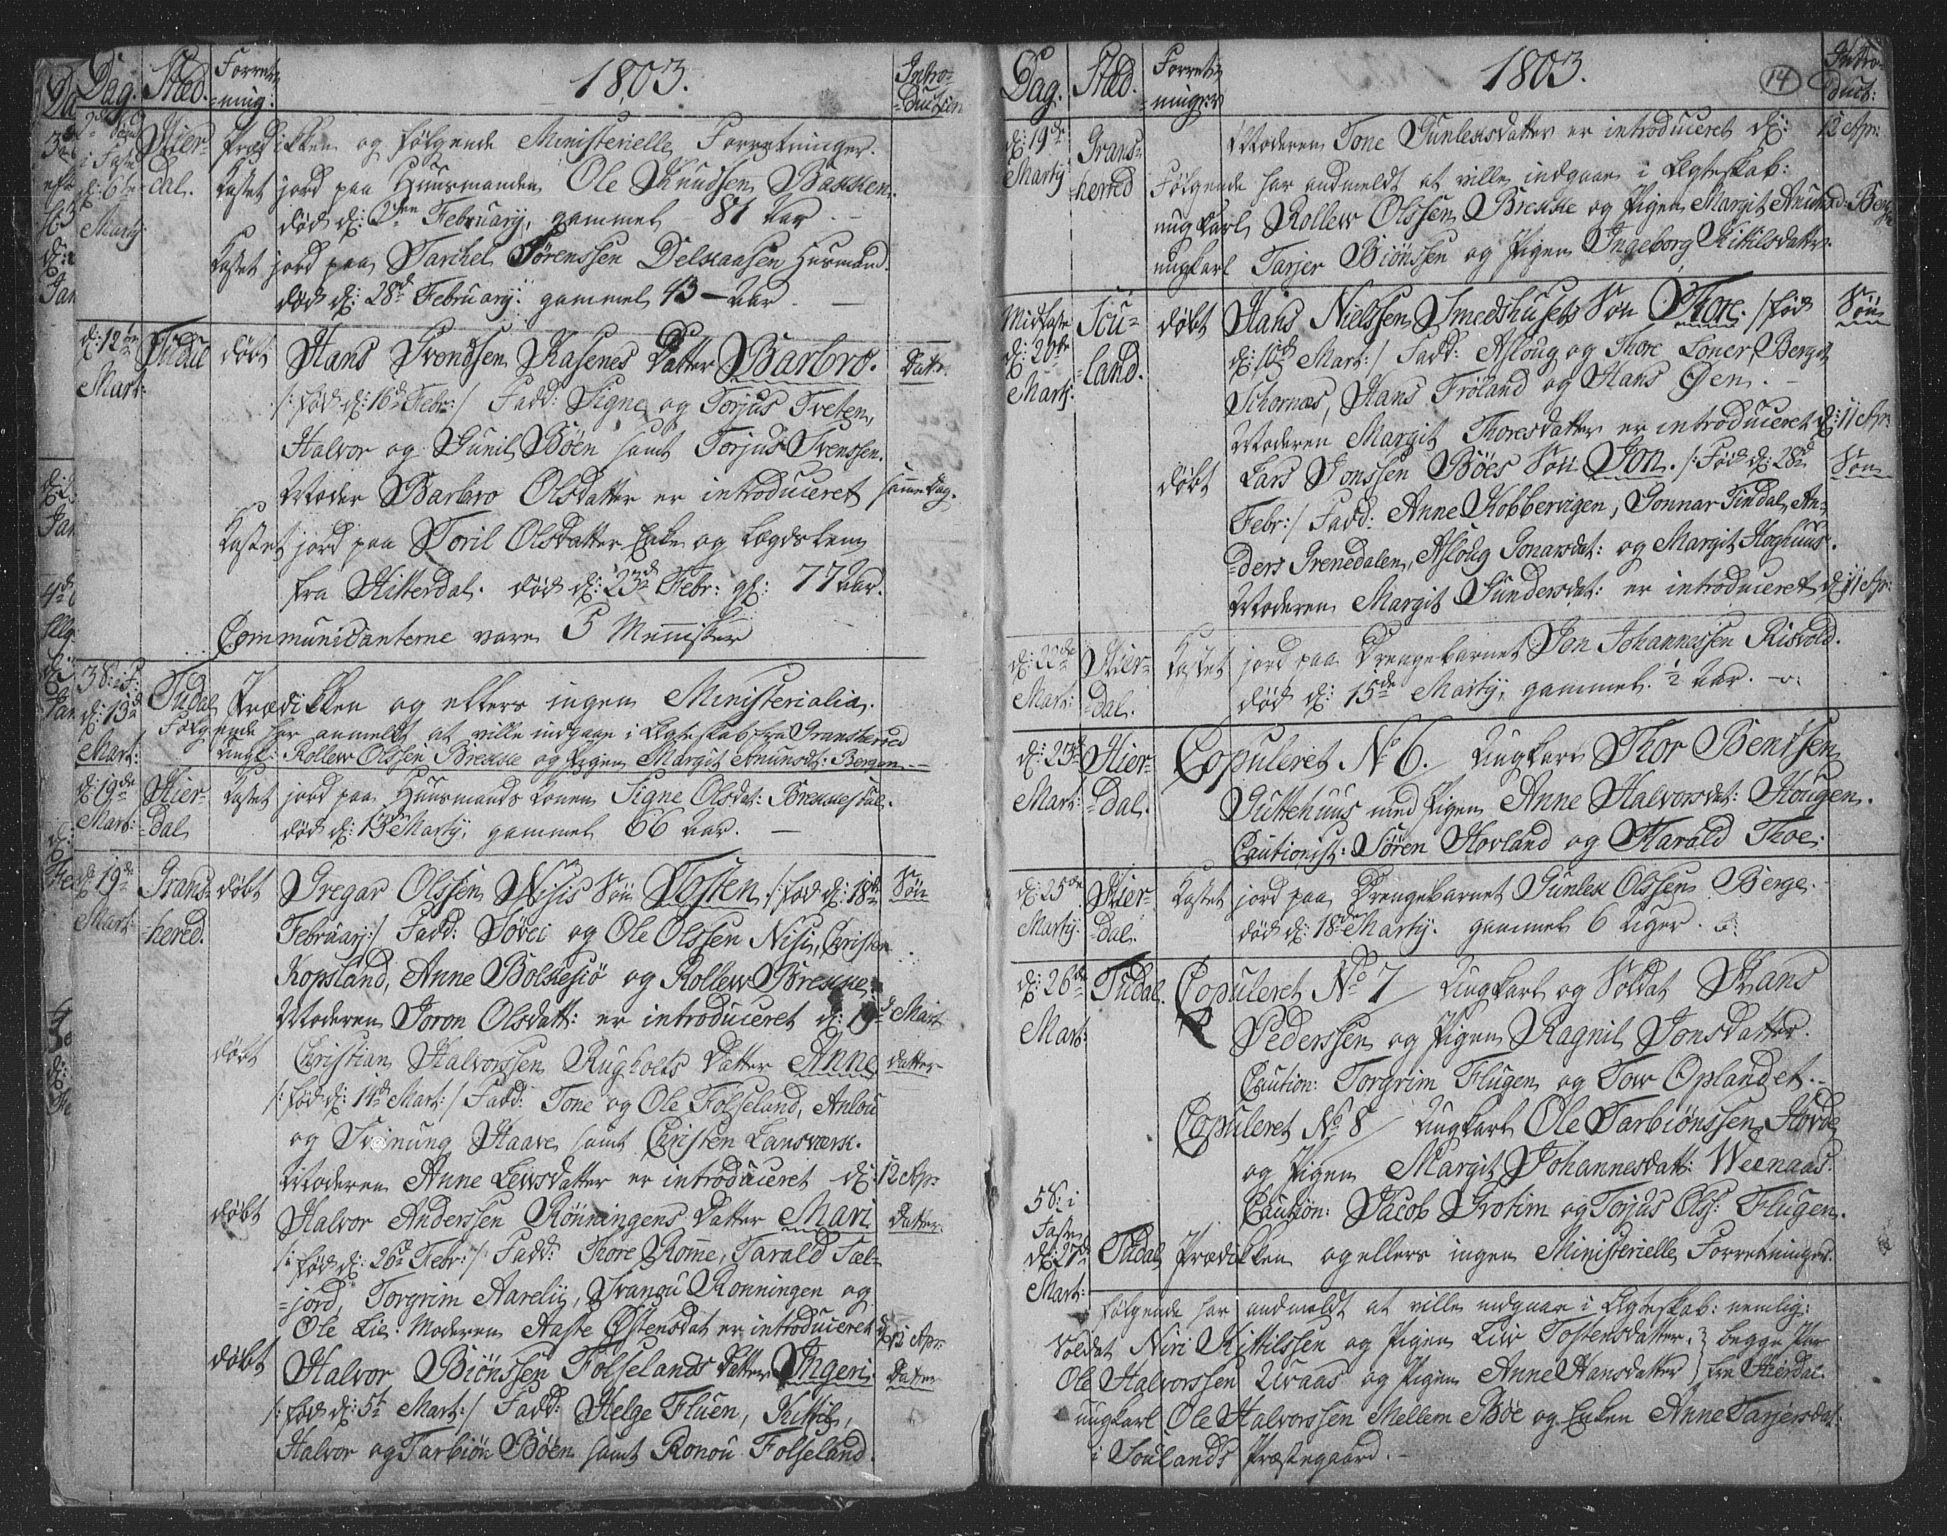 Dag. Sted. Forret=
=ning: 1803. Intro=
=duction
2den Sønd i Faste d: 6te Martj Hier=
dal. Prædikken og følgende Ministerielle Forretninger.
Kastet jord paa Huusmanden Ole Knudsen Bakken.
død d: 2den February, gammel 81 Aar. -
Kastet jord paa Tarchel Sørenssen Delskaasen Husmand.
død d: 28de February: gammel 43 - Aar. -
d: 12te Mart: Tudal døbt Hans Svendsen Kasenes Datter Barbro. Datr.
/: fød d: 16de Febr: / Fadd: Signe og Torjus Tveten,
Halvor og Gunil Bøen samt Torjus Svenssen.
Moder Barbro Olsdatter er introduceret samme Dag.
Kastet jord paa Toril Olsdatter Enke og Lægdslem
fra Hitterdal. død d: 23de Febr: gl: 77 Aar.
Communicanterne vare 5 Mennisker
3 S: i F. d: 13de Mart: Tudal Prædikken og ellers ingen Ministerialia.
Følgende har anmeldt at ville indgaae i Ægteskab fra Gransherred
Ungk: Rollew Olssen Brekke og Pigen Margit Anunsdt: Bergan -
d: 19de Mart: Hier=
=dal Kastet jord paa Huusmands Konen Signe Olsdat: Brennesdal.
død d: 13de Martj, gammel 66 Aar. -
d: 19de Mart: Grans=
=hered. døbt Gregar Olssen Nisis Søn Tosten /: fød d: 18de Søn
February: / Fadd: Søvei og Ole Olssen Nisi, Christen
Kopsland, Anne Bolkesiø og Rollew Brekke.
Moderen Joron Olsdatt: er introduceret d: 19de Mart
døbt Christian Halvorssen Rugholts Datter Anne Datter
/: fød d: 14de Mart: / Fadd: Tone og Ole Folseland, Anlou
og Svinung Haave samt Christen Lansværk.
Moderen Anne Lewsdatter er introduceret d: 12 Apr:
døbt Halvor Anderssen Rønningens Datter Mari Datter
/: fød d: 26de Febr: / Fadd: Thore Romme, Tarald Sæl=
=jord, Torgrim Aarelii, Svanou Ronningen og
Ole Lie: Moderen Aaste Østensdat er introduceret d: 12 Apr:
døbt Halvor Biønssen Folselands Datter Ingeri. Datter
/: fød d: 5te Mart: / Fadd: Helge Fluen, Kittil,
Halvor og Tarbiøn Bøen samt Ronou Folseland.
Dag. Sted. Forret=
ninger 1803. 14 Intro=
duct:
d: 19de Martj Grans=
herred Moderen Tone Gunleksdatter er introduceret d: 12 Apr:
Følgende har andmeldt at ville indgaae i Ægteskab:
ungkarl Rollew Olssen Brekke og Pigen Margit Anund: Bergan
ungkarl Tarjer Biønssen og Pigen Ingeborg Kitilsdatter
Midfaste d: 20de Martj. Sou=
=land. døbt Hans Nielssen Smedshusets Søn Thore. /: fød Søn
d: 16de Mart: / Fadd: Aslaug og Thore Loner, Bergit
Schornæs, Hans Frøland og Hans Øen. -
Moderen Margit Thoresdatter er introduceret d: 11 Apr:
døbt Lars Jonssen Bøes Søn Jon. /: Fød d: 28de Søn
Febr: / Fadd: Anne Kobbervigen, Gonnar Tindal, An=
=ders Grenedalen, Asloug Gonarsdat: og Margit Hoghuus.
Moderen Margit Gundersdat: er introduceret d: 11 Apr:
d: 22de Mart: Hier=
dal. Kastet jord paa Drengebarnet Jon Johannessen Risvold.
død d: 15de Martj, gammel ½ Aar. -
d: 23de Mart: Hier=
=dal. Copuleret No 6. / Ungkarl Thor Bentsen
Guttehuus med Pigen Anne Halvorsdat: Hougen.
Cautionist: Søren Hovland og Harald Thoe.
d: 25de Martj. Hier=
dal. Kastet jord paa Drengebarnet Gunlek Olssen Berge.
død d: 18de Martj. gammel 6 Uger.
d: 26de Mart: Tudal. Copuleret No 7 / Ungkarl og Soldat Hans
Pederssen og Pigen Ragnil Jonsdatter.
Caution: Torgrim Flugen og Tow Oplandet.
Copuleret No 8 / Ungkarl Ole Tarbiønssen Hovde
og Pigen Margit Johannesdatt: Weenaas.
Caution: Jacob Grotim og Torjus Ols: Flugen.
5 S: i Faste d: 27de Mart: Tudal Prædikken og ellers ingen Ministerielle Forretninger.
Følgende har andmeldt at ville indgaae i Ægteskab: nemlig:
Soldat Niri Kittilssen og Pigen Liv Tostensdatter, } begge Par
Ole Halvorssen Uraas og Pigen Anne Hansdatter } fra Hierdal
ungkarl Ole Halvorssen Mellem Bøe og Enken Anne Tarjersdat:
i Soulands Præstegaard. -